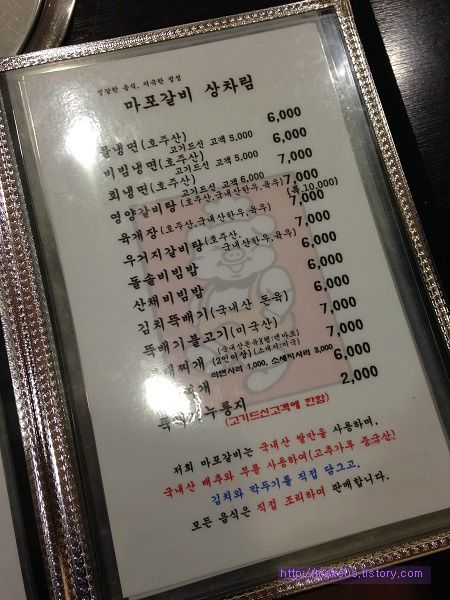 정갈한 음식, 지극한 정성
마포갈비 상차림
물냉면(호주산) 6,000
고기드신 고객 5,000
비빔냉면(호주산) 6,000
고기드신 고객 5,000
회냉면(호주산) 7,000
고기드신 고객 6,000
영양갈비탕(호주산,국내산한우,육우) 7,000
(특 10,000)
육개장(호주산,국내산한우,육우) 7,000
우거지갈비탕(호주산, 국내산한우,육우) 7,000
돌솥비빔밥 6,000
산채비빔밥 6,000
김치뚝배기(국내산 돈육) 6,000
뚝배기불고기(미국산) 7,000
찌개 (국내산돈육)(햄:덴마크) (2인이상)(소세지:미국) 7,000
라면사리 1,000, 소세지사리 3,000
찌개 6,000
누룽지 2,000
(고기드신고객에 한함)
저희 마포갈비는 국내산 쌀만을 사용하며,
국내산 배추와 무를 사용하여(고추가루 중국산)
김치와 깍두기를 직접 담그고,
모든 음식은 직접 조리하여 판매합니다.